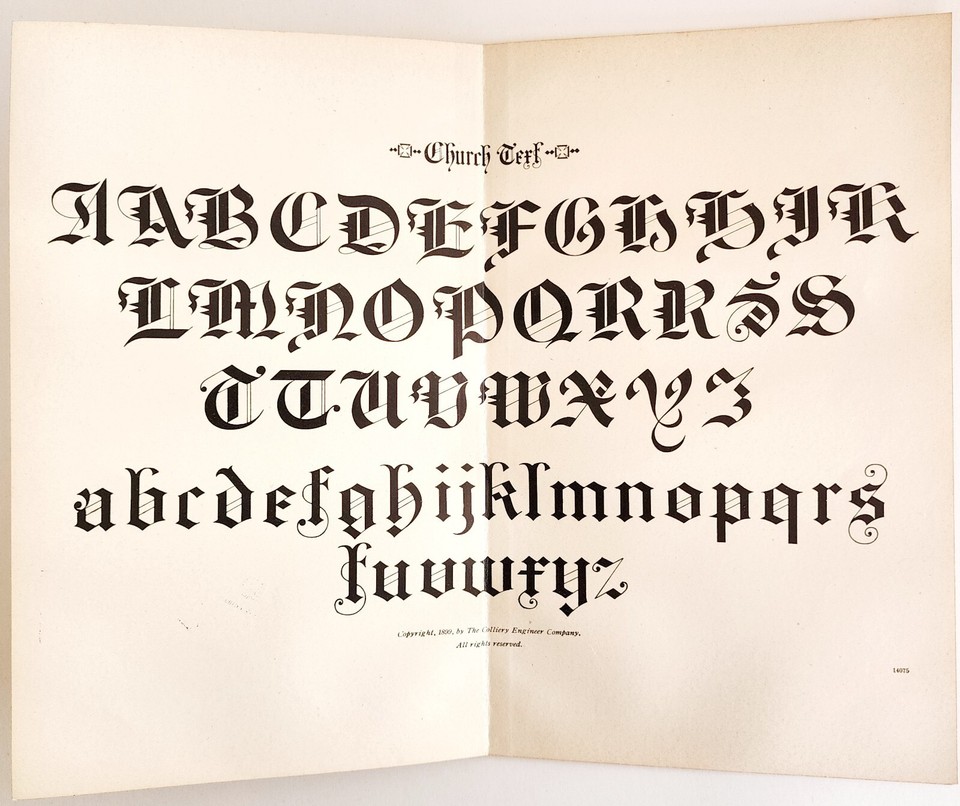 Church Text
AABCDEFGHHIK
LMNOPQRRSS
TTUVWXYZ
abcdefghijklmnopqrs
tuvwxyz
Copyright, 1899, by The Colliery Engineer Company.
All rights reserved.
14075